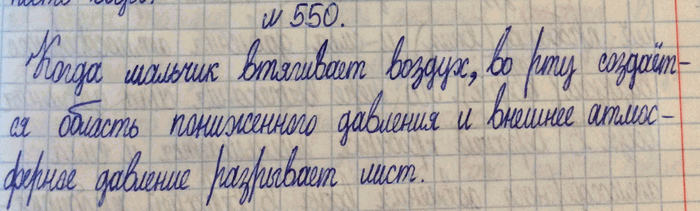 № 550.
Когда мальчик втягивает воздух, во рту создаёт-
ся область пониженного давления и внешнее атмос-
ферное давление разрывает лист.